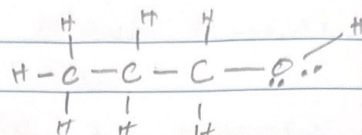 H H H H
H - C - C - C - O
H H H